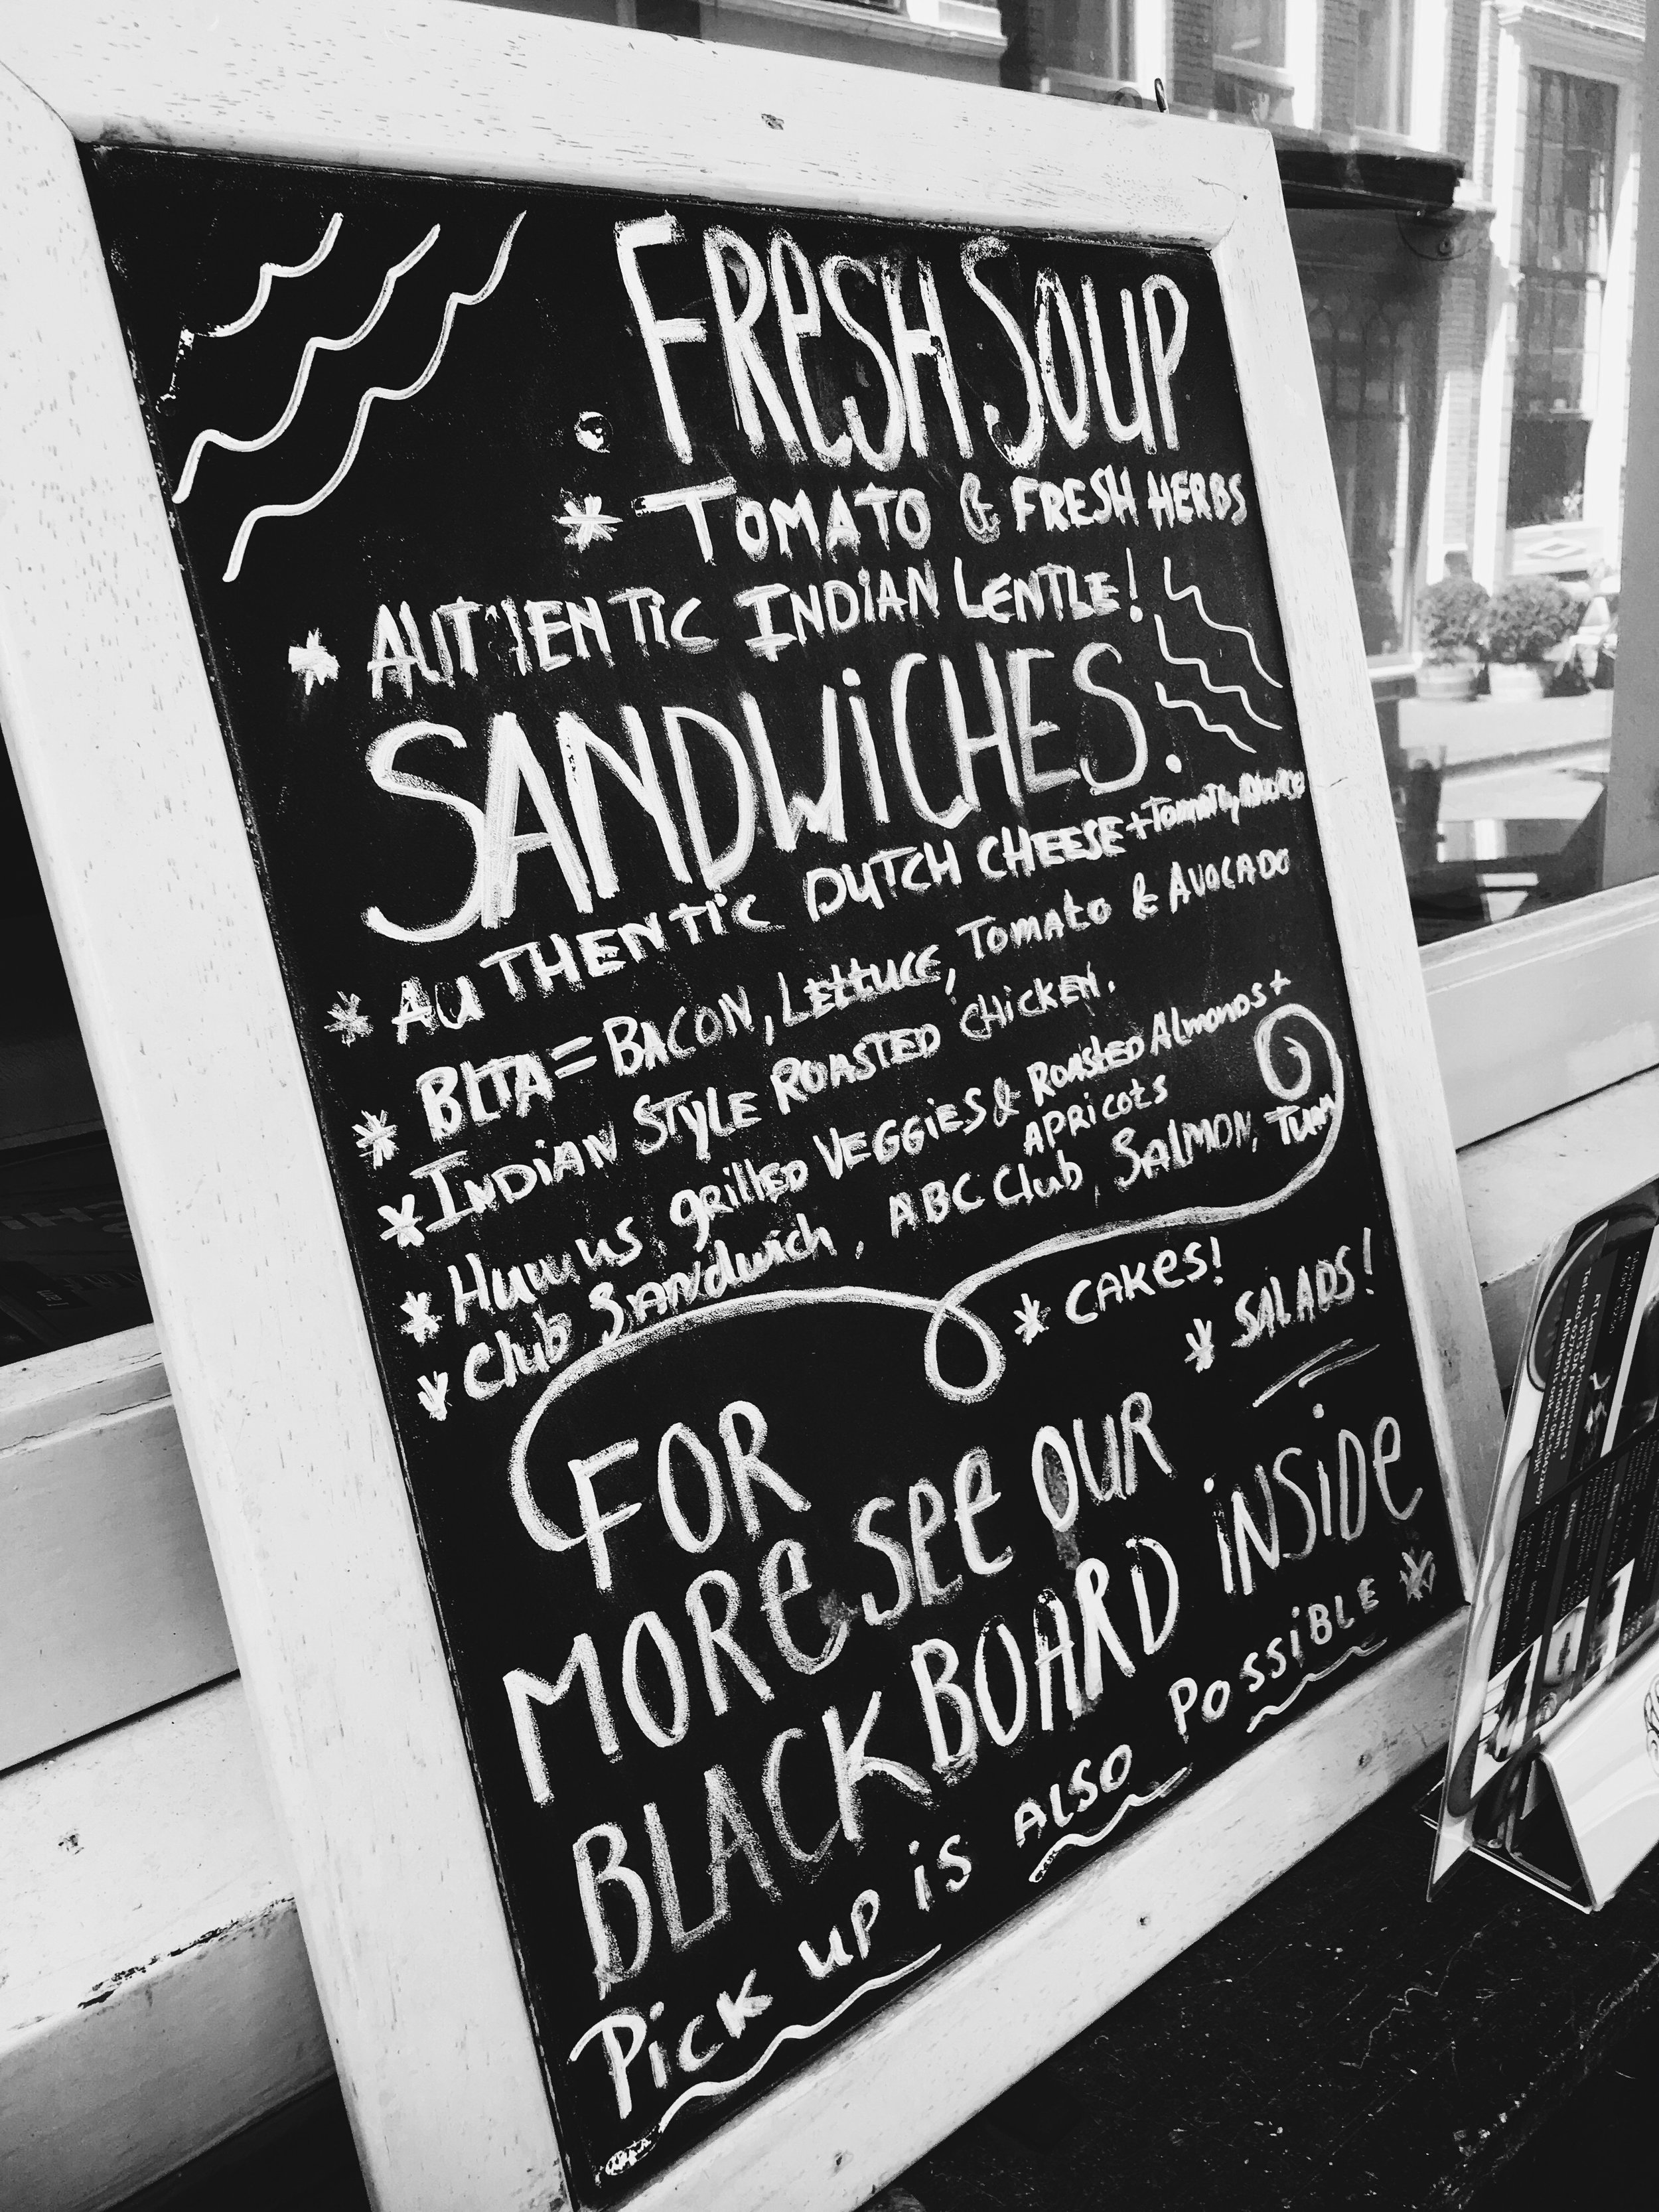 FReSH SOUP
* TOMATO & FRESH HERBS
* AUTHENTIC INDIAN LENTLE!
SANDWiCHES.
* AUTHENTiC DUTCH CHEESE + Tomato,
* BLTA = BACON, Lettuce, Tomato & AVOCADO
* INDIAN STYLE ROASTED CHiCKEN.
* Humus grilled VEGGiES & Roasted Almonds +
APRicots
* Club Sandwich, ABC Club, SALMON, Tuna
* CAKES!
* SALADS!
FOR
MORe SEe OUR
BLACK BOARD iNSiDe
Pick up is ALSO PossiBLE *